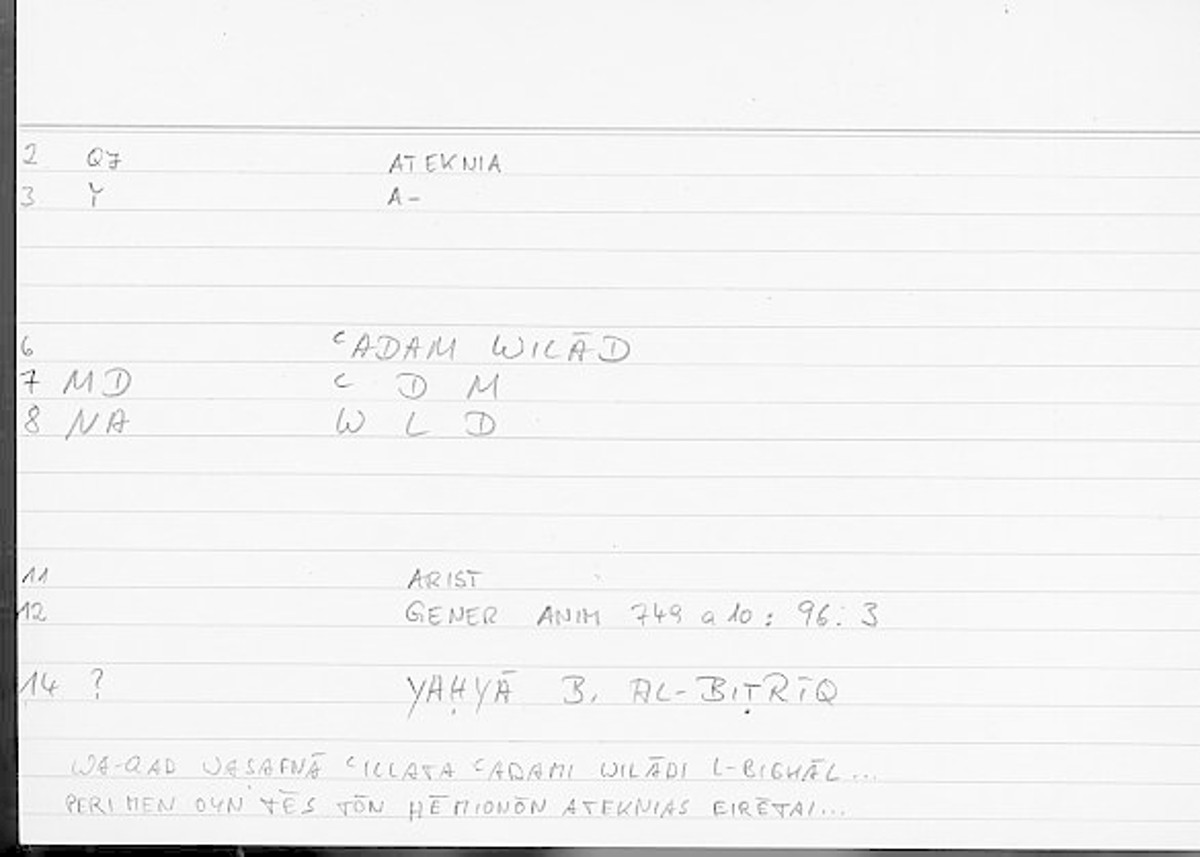 2 Q7 ATEKNIA
3 Y A-
6 ʿADAM WILĀD
7 MD ʿ D M
8 NA W L D
11 ARIST
12 GENER ANIM 749 a 10 : 96 : 3
14 ? YAḤYĀ B. AL-BIṬRĪQ
WA-QAD WAṢAFNĀ ʿILLATA ʿADAMI WILĀDI L-BIGHĀL...
PERI MEN OYN TĒS TŌN HĒMIONŌN ATEKNIAS EIRĒTAI...